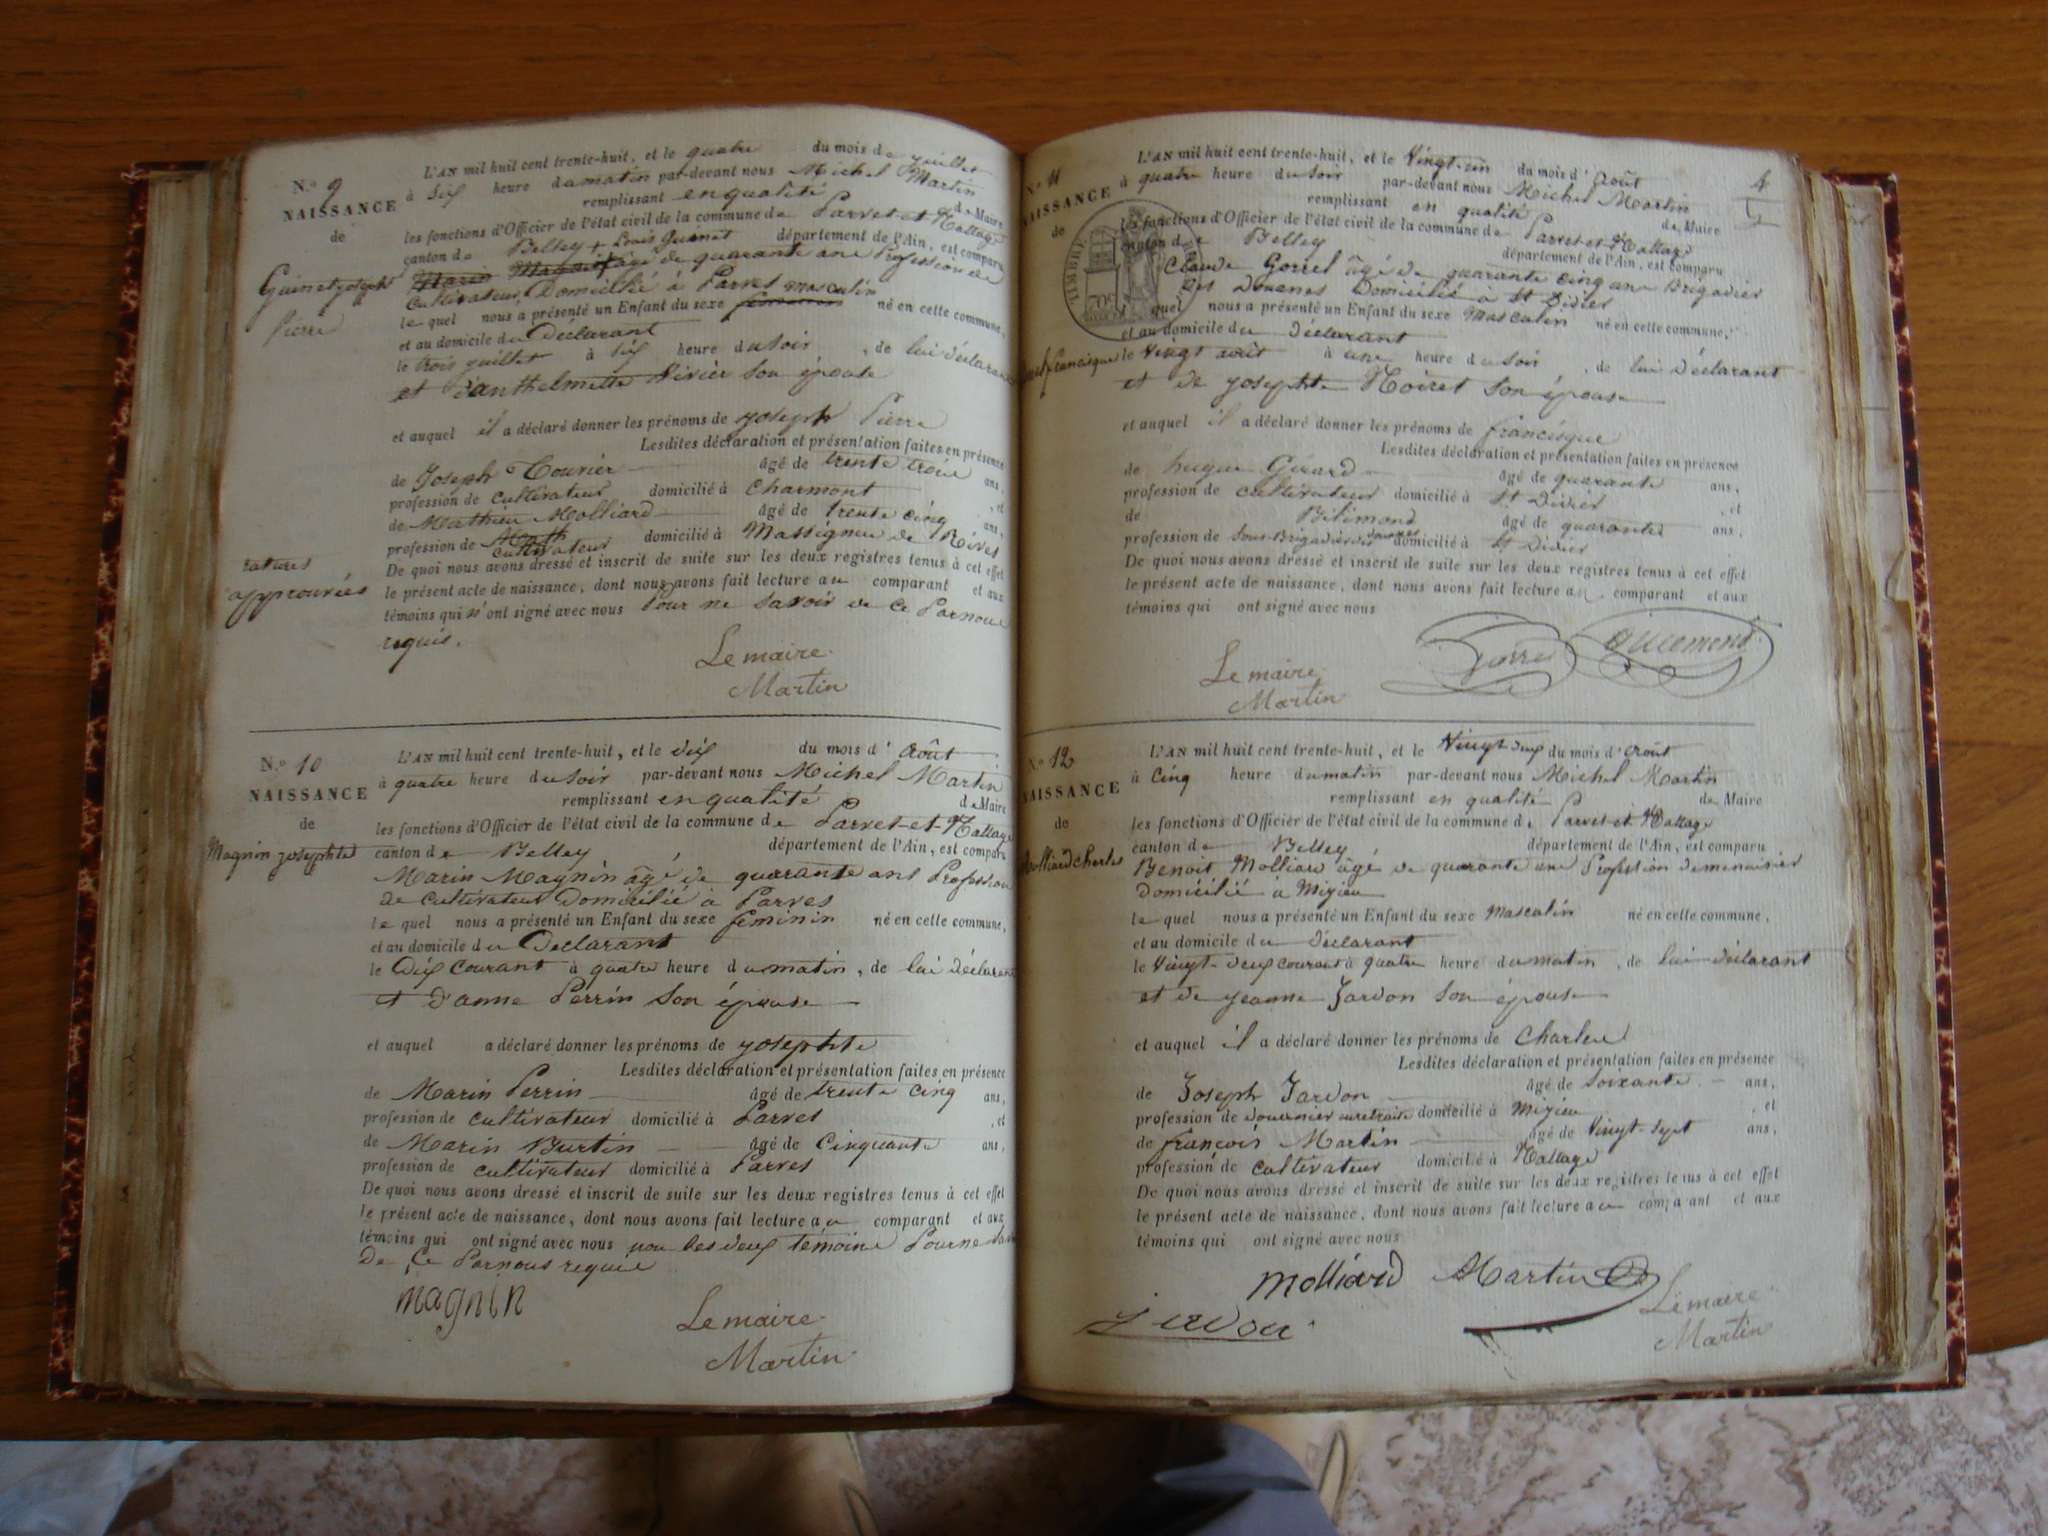 N.° 9
NAISSANCE
de
Guinet joseph
Pierre
ratures
approuvées
L'AN mil huit cent trente-huit, et le quatre du mois de juillet
à Six heure du matin par-devant nous Michel Martin
remplissant en qualité de Maire
les fonctions d'Officier de l'état civil de la commune de Parves-et-Nattage
canton de Belley + Louis Guinet département de l'Ain, est comparu
Marin Magnin + agé de quarante ans Profession de
Cultivateur Domicilié à Parves masculin
le quel nous a présenté un Enfant du sexe né en cette commune,
et au domicile du Déclarant
le trois juillet à Six heure du soir, de lui déclarant
et d'anthelmette Vivier son épouse
et auquel il a déclaré donner les prénoms de joseph Pierre
Lesdites déclaration et présentation faites en présence
de Joseph Courier âgé de trente trois ans,
profession de cultivateur domicilié à Charmont, et
de Mathieu Molliard âgé de trente cinq ans,
profession de cultivateur domicilié à Massigneu de Rives
De quoi nous avons dressé et inscrit de suite sur les deux registres tenus à cet effet
le présent acte de naissance, dont nous avons fait lecture au comparant et aux
témoins qui n'ont signé avec nous Pour ne savoir de ce Par nous
requis.
Le maire
Martin
N.° 10
NAISSANCE
de
Magnin josephte
L'AN mil huit cent trente-huit, et le dix du mois d'Août
à quatre heure du soir par-devant nous Michel Martin
remplissant en qualité de Maire
les fonctions d'Officier de l'état civil de la commune de Parves-et-Nattage
canton de Belley département de l'Ain, est comparu
Marin Magnin âgé de quarante ans Profession
de cultivateur Domicilié à Parves
le quel nous a présenté un Enfant du sexe féminin né en cette commune,
et au domicile du Déclarant
le Dix courant à quatre heure du matin, de lui déclarant
et d'anne Perrin son épouse
et auquel a déclaré donner les prénoms de josephte
Lesdites déclaration et présentation faites en présence
de Marin Perrin âgé de trente cinq ans,
profession de cultivateur domicilié à Parves, et
de Marin Burtin âgé de Cinquante ans,
profession de cultivateur domicilié à Parves
De quoi nous avons dressé et inscrit de suite sur les deux registres tenus à cet effet
le présent acte de naissance, dont nous avons fait lecture au comparant et aux
témoins qui ont signé avec nous non les deux témoins Pour ne
De Ce Par nous requis
magnin
Le maire
Martin
4
N.° 11
NAISSANCE
de
TIMBRE
francisque
L'AN mil huit cent trente-huit, et le Vingt-un du mois d'Août
à quatre heure du soir par-devant nous Michel Martin
remplissant en qualité de Maire
les fonctions d'Officier de l'état civil de la commune de Parves-et-Nattage
canton de Belley département de l'Ain, est comparu
Claude Gorrel âgé de quarante cinq ans Brigadier
des Douanes Domicilié à St Didier
le quel nous a présenté un Enfant du sexe Masculin né en cette commune,
et au domicile du déclarant
le Vingt août à une heure du soir, de lui déclarant
et de josephte Noiret son épouse
et auquel il a déclaré donner les prénoms de francisque
Lesdites déclaration et présentation faites en présence
de hugue Girard âgé de quarante ans,
profession de cultivateur domicilié à St Didier, et
de âgé de quarante ans,
profession de Sous-Brigadier des douanes domicilié à St Didier
De quoi nous avons dressé et inscrit de suite sur les deux registres tenus à cet effet
le présent acte de naissance, dont nous avons fait lecture au comparant et aux
témoins qui ont signé avec nous
Le maire
Martin
N.° 12
NAISSANCE
de
Molliard charles
L'AN mil huit cent trente-huit, et le Vingt-deux du mois d'Août
à Cinq heure du matin par-devant nous Michel Martin
remplissant en qualité de Maire
les fonctions d'Officier de l'état civil de la commune de Parves-et-Nattage
canton de Belley département de l'Ain, est comparu
Benoit Molliard âgé de quarante ans Profession de menuisier
Domicilié à Mizieu
le quel nous a présenté un Enfant du sexe Masculin né en cette commune,
et au domicile du déclarant
le Vingt-deux courant à quatre heure du matin, de lui déclarant
et de jeanne Jardon son épouse
et auquel il a déclaré donner les prénoms de Charles
Lesdites déclaration et présentation faites en présence
de Joseph Jardon âgé de soixante ans,
profession de douanier en retraite domicilié à Mizieu, et
de françois Martin âgé de Vingt-sept ans,
profession de cultivateur domicilié à Nattage
De quoi nous avons dressé et inscrit de suite sur les deux registres tenus à cet effet
le présent acte de naissance, dont nous avons fait lecture au comparant et aux
témoins qui ont signé avec nous
Molliard Martin
Le maire
Martin